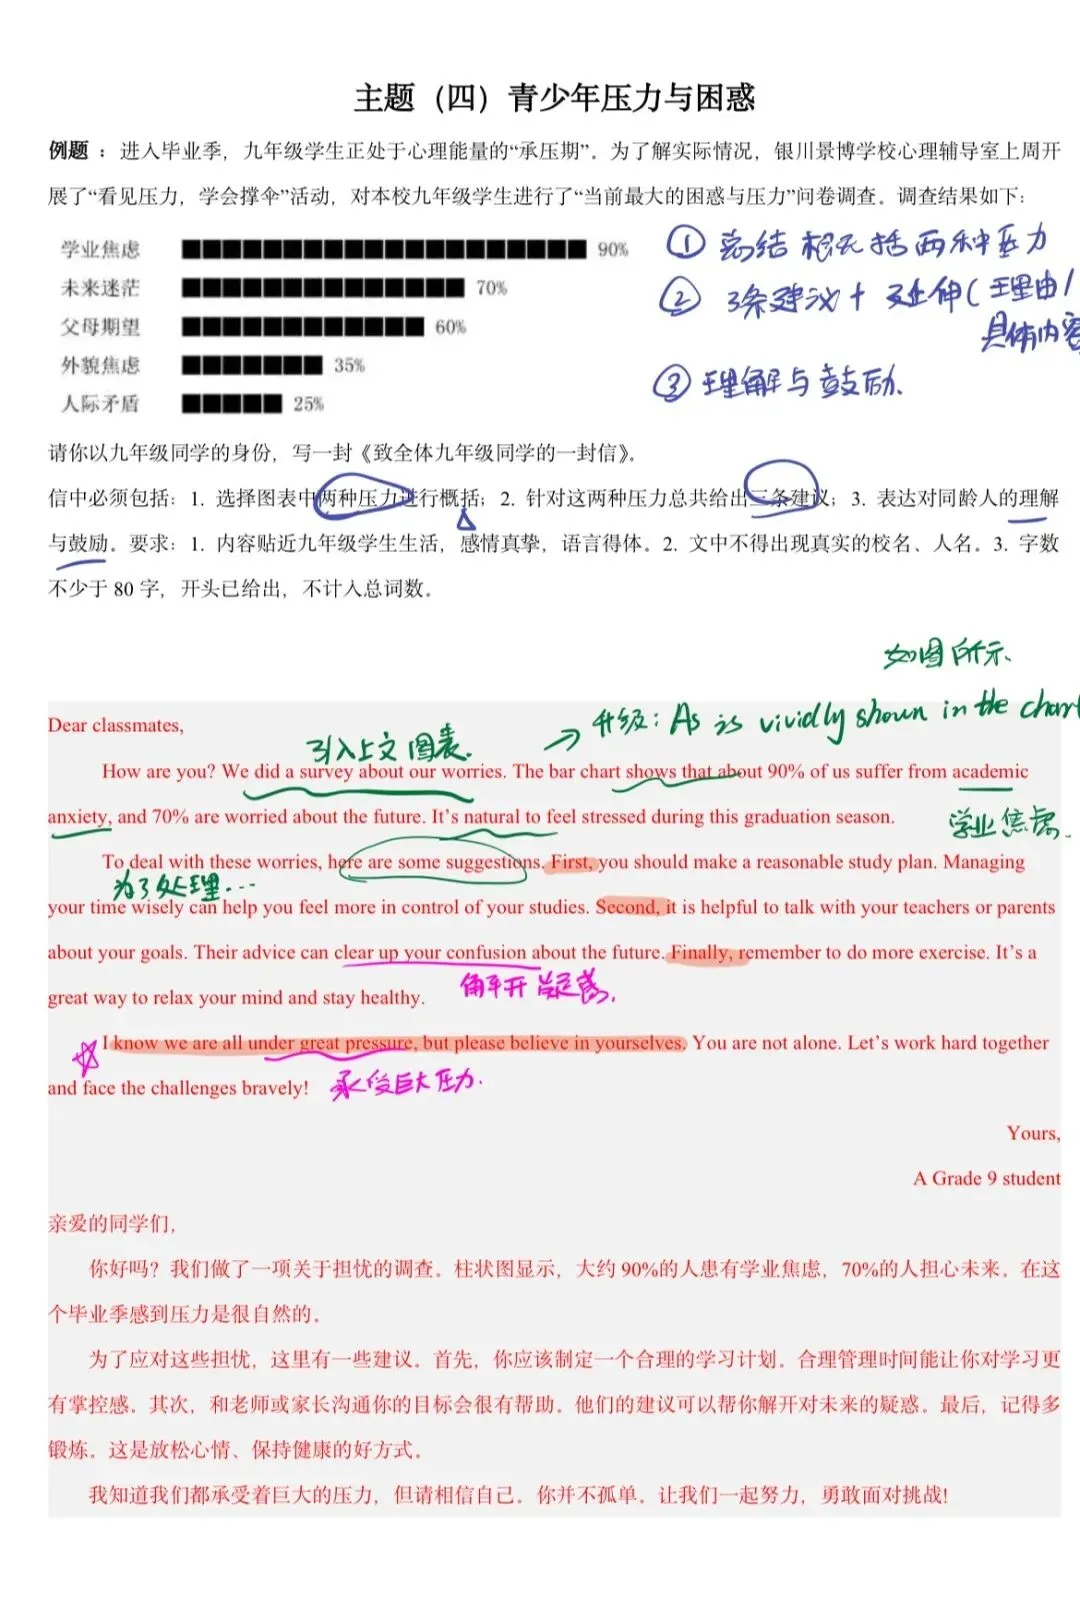 主题（四）青少年压力与困惑
例题 ：进入毕业季，九年级学生正处于心理能量的“承压期”。为了解实际情况，银川景博学校心理辅导室上周开
展了“看见压力，学会撑伞”活动，对本校九年级学生进行了“当前最大的困惑与压力”问卷调查。调查结果如下：
学业焦虑 90%
未来迷茫 70%
父母期望 60%
外貌焦虑 35%
人际矛盾 25%
① 总结 概括两种压力
② 3条建议＋延伸(理由/
具体内容
③ 理解与鼓励.
请你以九年级同学的身份，写一封《致全体九年级同学的一封信》。
信中必须包括：1. 选择图表中两种压力进行概括；2. 针对这两种压力总共给出三条建议；3. 表达对同龄人的理解
与鼓励。要求：1. 内容贴近九年级学生生活，感情真挚，语言得体。2. 文中不得出现真实的校名、人名。3. 字数
不少于 80 字，开头已给出，不计入总词数。
如图所示.
升级: As is vividly shown in the chart
Dear classmates,
引入上文图表.
How are you? We did a survey about our worries. The bar chart shows that about 90% of us suffer from academic
anxiety, and 70% are worried about the future. It’s natural to feel stressed during this graduation season.
学业焦虑.
To deal with these worries, here are some suggestions. First, you should make a reasonable study plan. Managing
为了处理...
your time wisely can help you feel more in control of your studies. Second, it is helpful to talk with your teachers or parents
about your goals. Their advice can clear up your confusion about the future. Finally, remember to do more exercise. It’s a
great way to relax your mind and stay healthy.
解开疑惑.
I know we are all under great pressure, but please believe in yourselves. You are not alone. Let’s work hard together
and face the challenges bravely!
承受巨大压力.
Yours,
A Grade 9 student
亲爱的同学们，
你好吗？我们做了一项关于担忧的调查。柱状图显示，大约 90%的人患有学业焦虑，70%的人担心未来。在这
个毕业季感到压力是很自然的。
为了应对这些担忧，这里有一些建议。首先，你应该制定一个合理的学习计划。合理管理时间能让你对学习更
有掌控感。其次，和老师或家长沟通你的目标会很有帮助。他们的建议可以帮你解开对未来的疑惑。最后，记得多
锻炼。这是放松心情、保持健康的好方式。
我知道我们都承受着巨大的压力，但请相信自己。你并不孤单。让我们一起努力，勇敢面对挑战！